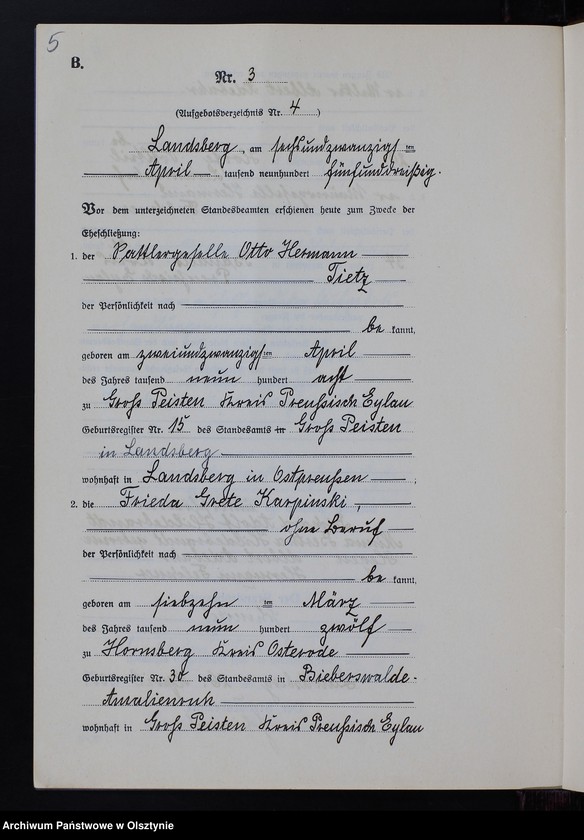 5
B.
Nr. 3
(Aufgebotsverzeichnis Nr. 4)
Landsberg, am sechsundzwanzigsten
April tausend neunhundert fünfunddreißig.
Vor dem unterzeichneten Standesbeamten erschienen heute zum Zwecke der
Eheschließung:
1. der Sattlergeselle Otto Hermann
Tietz
der Persönlichkeit nach
be kannt,
geboren am zweiundzwanzigsten April
des Jahres tausend neun hundert acht
zu Groß Peisten Kreis Preußisch Eylau
Geburtsregister Nr. 15 des Standesamts in Groß Peisten
in Landsberg
wohnhaft in Landsberg in Ostpreußen ;
2. die Frieda Grete Karpinski,
ohne Beruf
der Persönlichkeit nach
be kannt,
geboren am siebzehn ten März
des Jahres tausend neun hundert zwölf
zu Hornsberg Kreis Osterode
Geburtsregister Nr. 30 des Standesamts in Bieberswalde-
Amalienruh
wohnhaft in Groß Peisten Kreis Preußisch Eylau
Archiwum Państwowe w Olsztynie